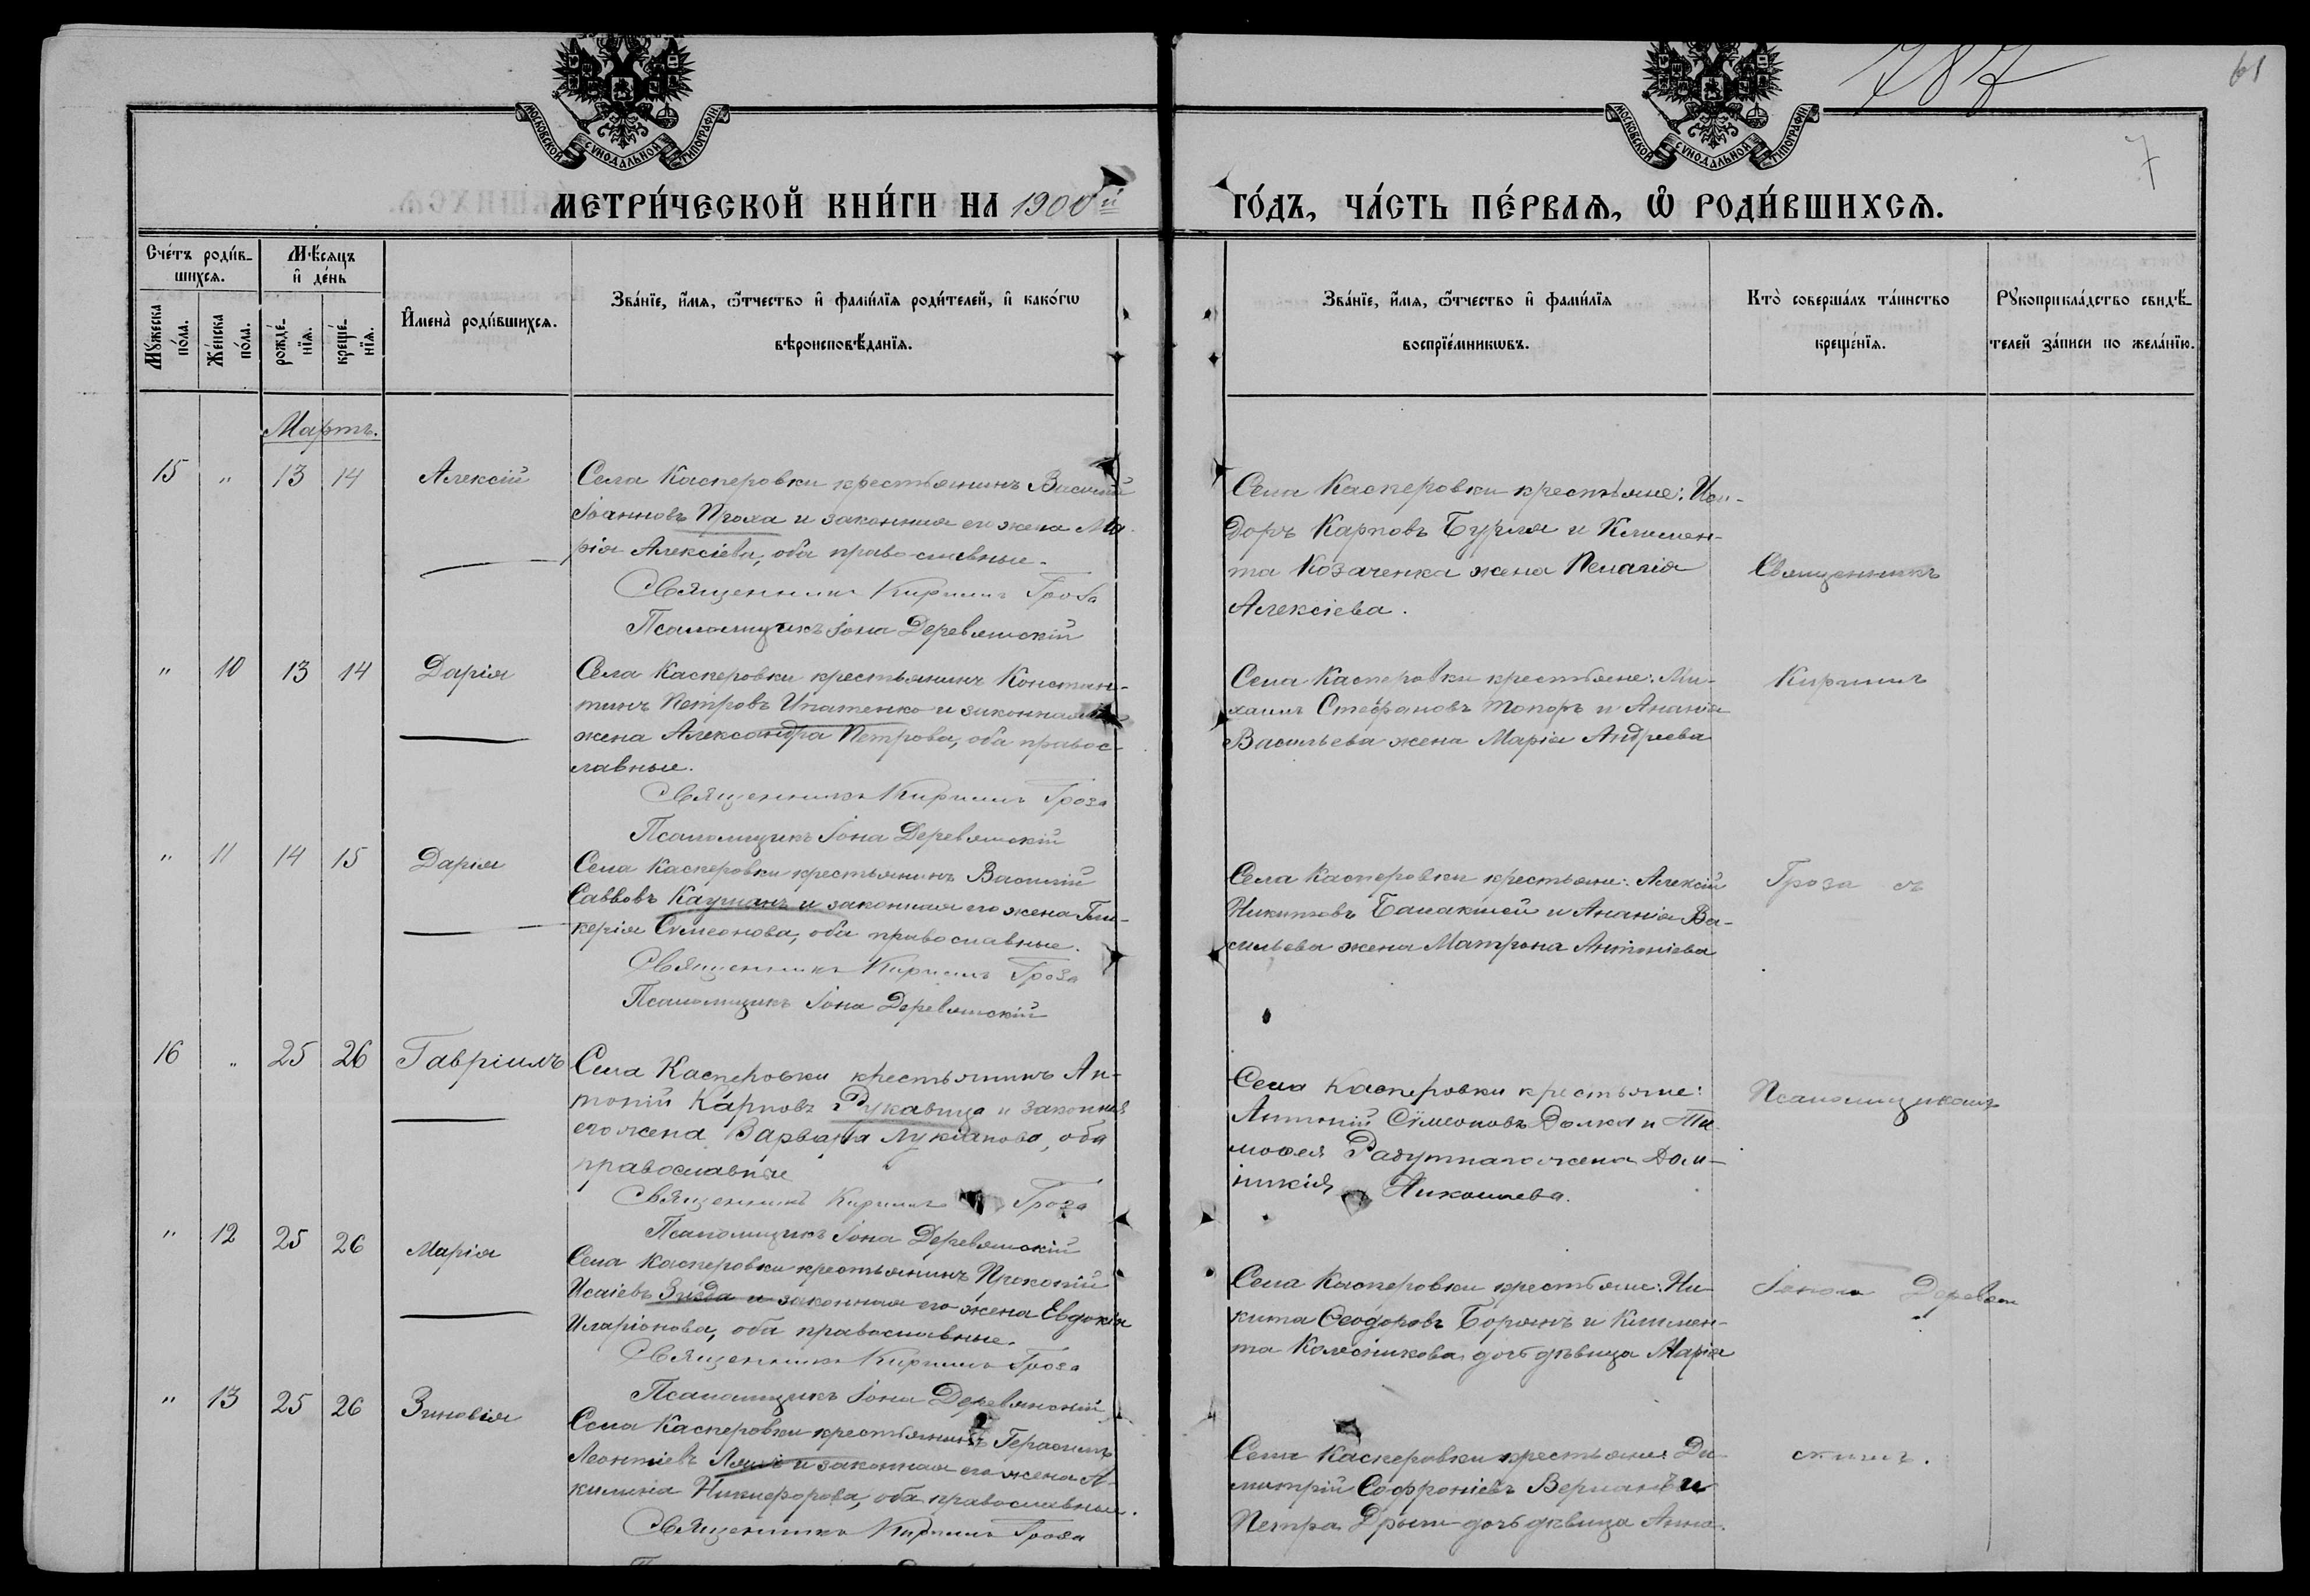 787
61
7
МОСКОВСКОЙ СУНОДАЛЬНОЙ ТИПОГРАФІИ
МОСКОВСКОЙ СУНОДАЛЬНОЙ ТИПОГРАФІИ
МЕТРИ́ЧЕСКОЙ КНИ́ГИ НА 1900й
ГО́ДЪ, ЧА́СТЬ ПЕ́РВАѦ, Ѡ РОДИ́ВШИХСѦ.
Сче́тъ роди́в-
шихсѧ.
Мѣ́сѧцъ
и де́нь
Мꙋ́жеска
по́ла.
Же́нска
по́ла.
рожде́-
нїѧ.
креще́-
нїѧ.
И҆мена̀ роди́вшихсѧ.
Зва́нїе, и҆́мѧ, ѻ҆́тчество и҆ фамѝлїѧ роди́телей, и҆ како́гѡ
вѣроисповѣ́данїѧ.
Зва́нїе, и҆́мѧ, ѻ҆́тчество и҆ фамѝлїѧ
воспрїе́мникѡвъ.
Кто̀ соверша́лъ та́инство
креще́нїѧ.
Рꙋкоприкла́дство свидѣ́-
телей за́писи по жела́нїю.
Мартъ.
15 " 13 14 Алексій
Села Касперовки крестьянинъ Василій
Іоанновъ Проха и законная его жена Ма-
рія Алексіева, оба православные.
Священникъ Кириллъ Гроза
Псаломщикъ Іона Деревянскій
Села Касперовки крестьяне: Иси-
доръ Карповъ Бурля и Климен-
та Козаченка жена Пелагія
Алексіева.
Священникъ
" 10 13 14 Дарія
Села Касперовки крестьянинъ Констан-
тинъ Петровъ Ипатенко и законная
жена Александра Петрова, оба правос-
лавные.
Священникъ Кириллъ Гроза
Псаломщикъ Іона Деревянскій
Села Касперовки крестьяне: Ми-
хаилъ Стефановъ Топоръ и Ананія
Васильева жена Марія Андреева
Кириллъ
" 11 14 15 Дарія
Села Касперовки крестьянинъ Василій
Саввовъ Кауманъ и законная его жена Гли-
керія Симеонова, оба православные.
Священникъ Кириллъ Гроза
Псаломщикъ Іона Деревянскій
Села Касперовки крестьяне: Алексій
Никитовъ Балакшей и Ананія Ва-
сильева жена Матрона Антоніева
Гроза съ
16 " 25 26 Гавріилъ
Села Касперовки крестьянинъ Ан-
тоній Карповъ Рукавица и законная
его жена Варвара Лукіанова, оба
православные
Священникъ Кириллъ Гроза
Псаломщикъ Іона Деревянскій
Села Касперовки крестьяне:
Антоній Симеоновъ Долля и Ти-
моѳея Радутнаго жена Дом-
никія Николаева.
Псаломщикомъ
" 12 25 26 Марія
Села Касперовки крестьянинъ Прокопій
Исаіевъ Зизда и законная его жена Евдокія
Иларіонова, оба православные.
Священникъ Кириллъ Гроза
Псаломщикъ Іона Деревянскій
Села Касперовки крестьяне: Ни-
кита Ѳеодоровъ Борянъ и Климен-
та Колесникова дочь дѣвица Марія
Іоною Деревян
" 13 25 26 Зиновія
Села Касперовки крестьянинъ Герасимъ
Леонтіевъ и законная его жена А-
килина Никифорова, оба православные.
Священникъ Кириллъ Гроза
Села Касперовки крестьяне Ди-
митрій Софроніевъ Верланъ и
Петра Дрыги дочь дѣвица Анна.
скимъ.